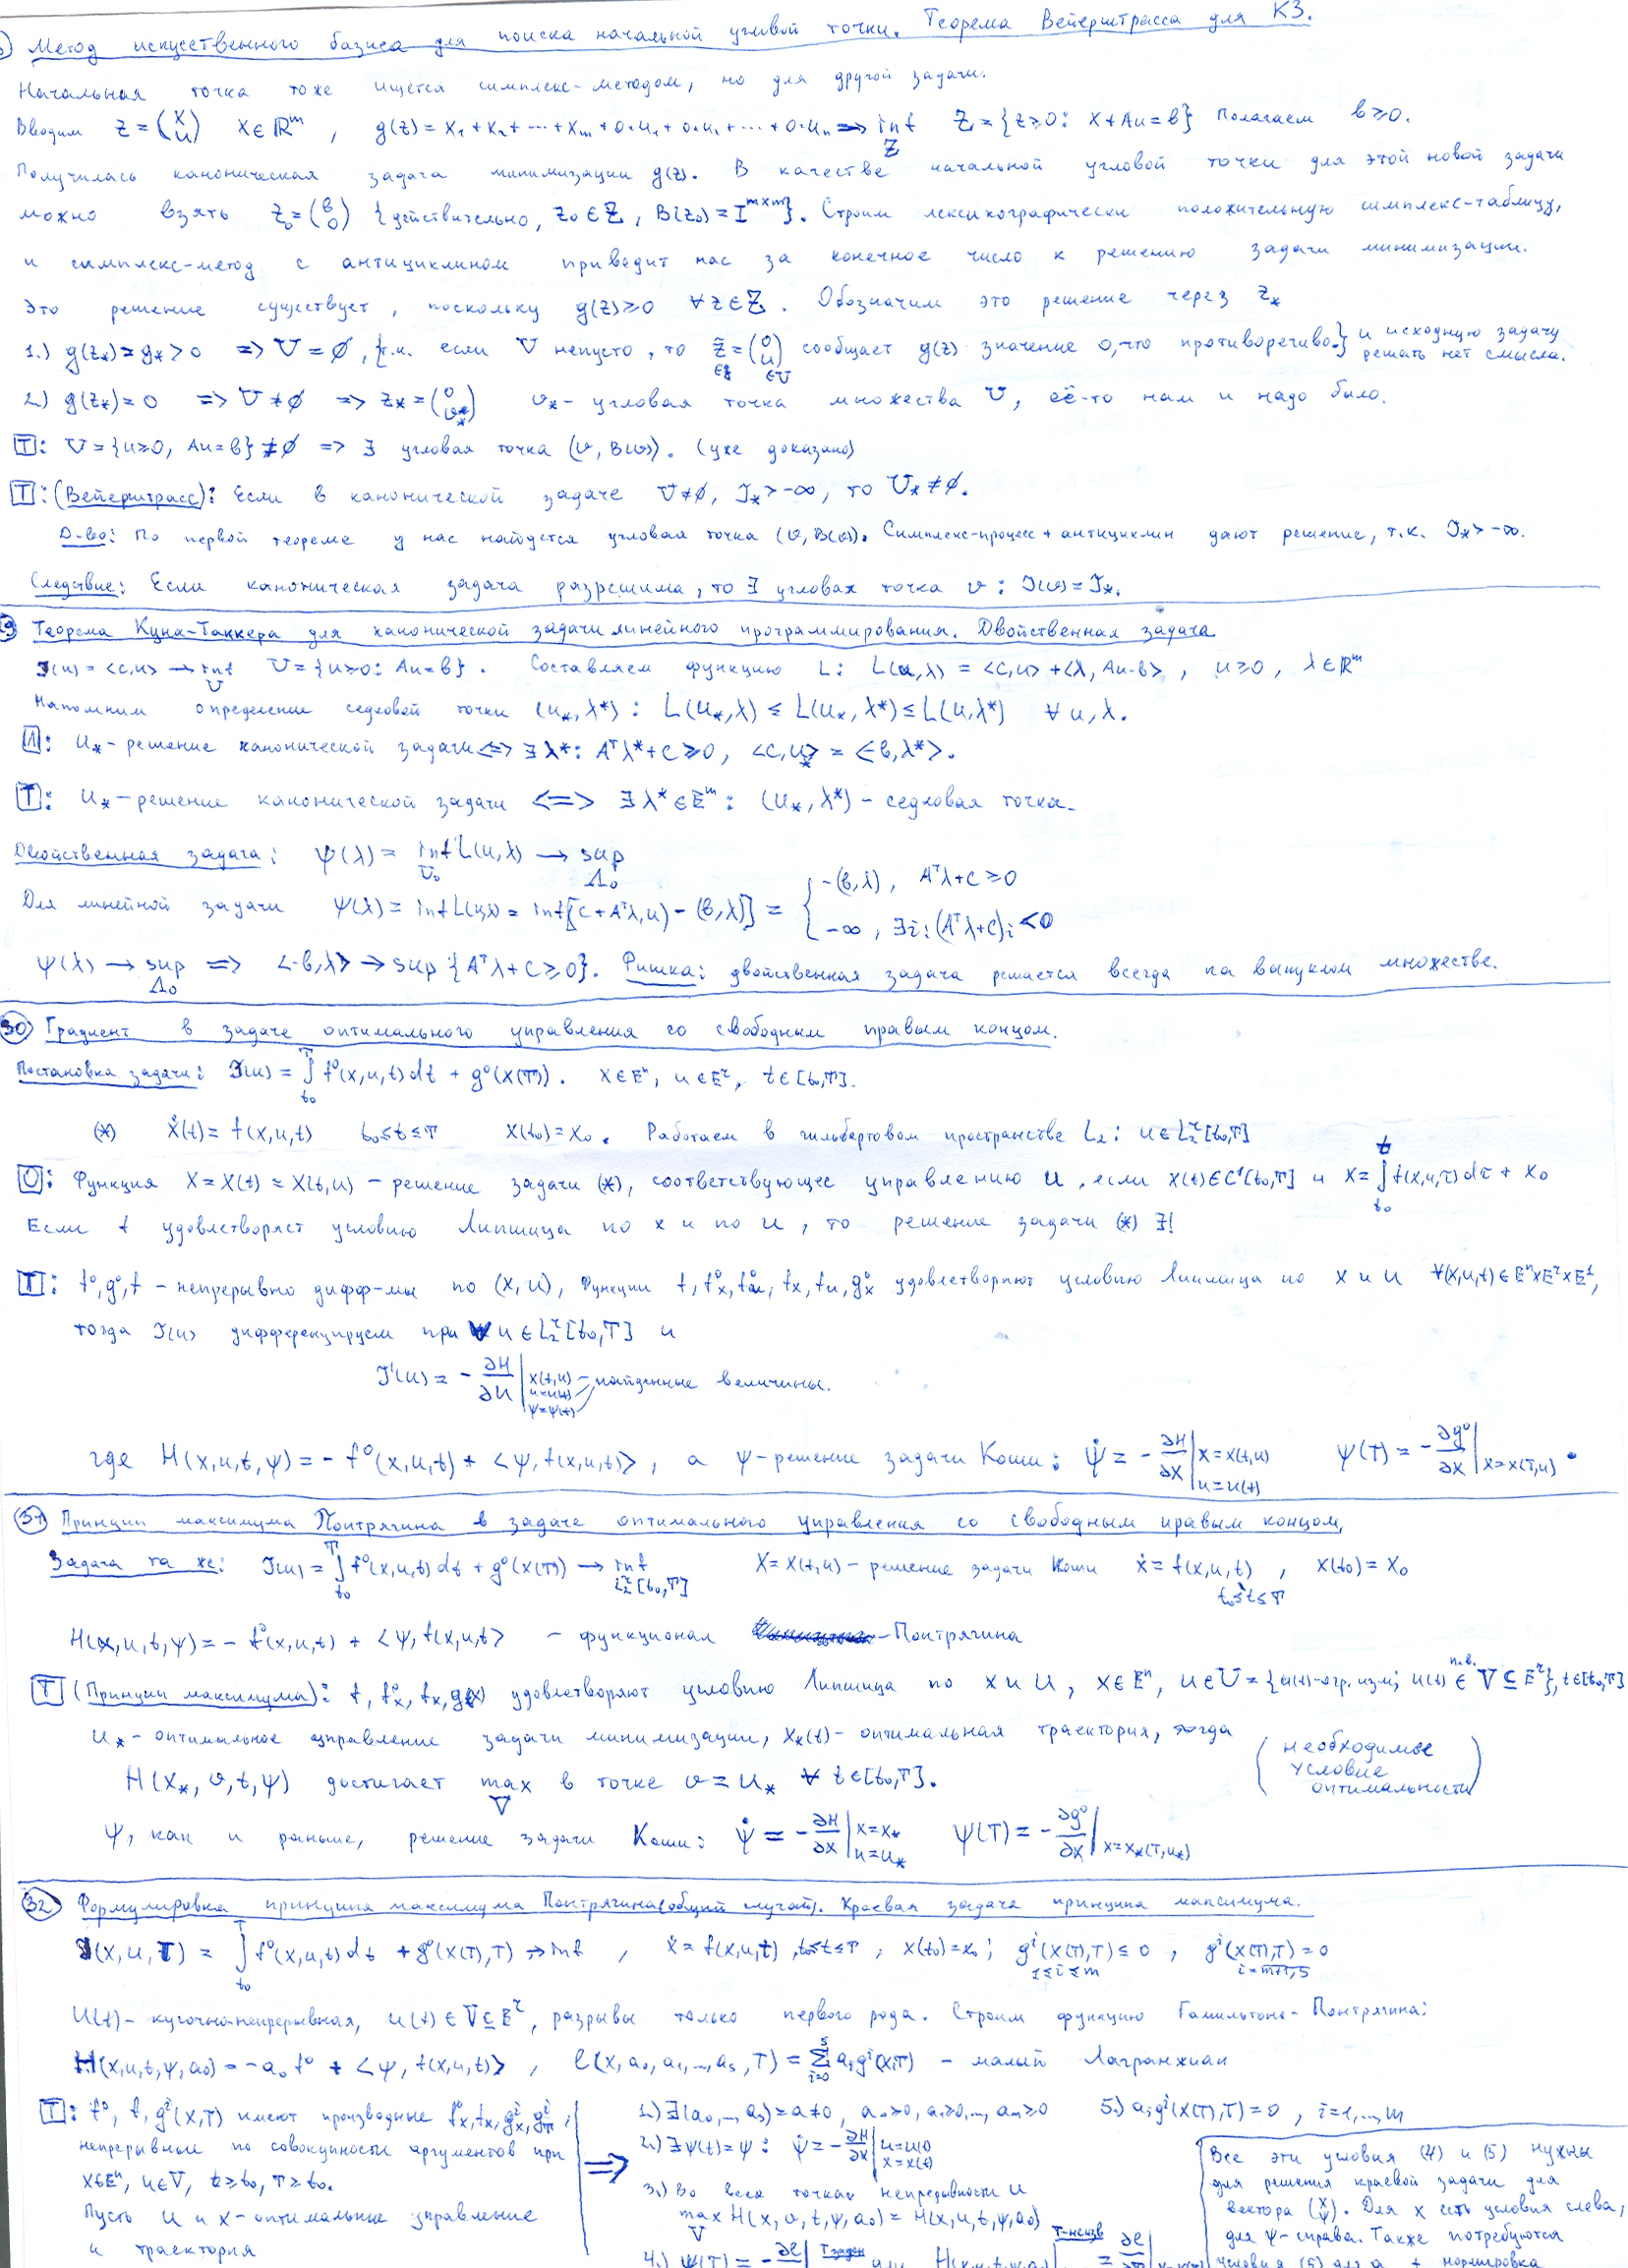 ) Метод искусственного базиса для поиска начальной угловой точки. Теорема Вейерштрасса для КЗ.
Начальная точка тоже ищется симплекс-методом, но для другой задачи.
Вводим z = (x u) x ∈ ℝᵐ, g(z) = x₁ + x₂ + ... + xₘ + 0·u₁ + 0·u₂ + ... + 0·uₙ → inf_Z Z = {z ≥ 0: x + Au = b} Полагаем b ≥ 0.
Получилась каноническая задача минимизации g(z). В качестве начальной угловой точки для этой новой задачи
можно взять z₀ = (b 0) {действительно, z₀ ∈ Z, B(z₀) = I^{m×m}}. Строим лексикографически положительную симплекс-таблицу,
и симплекс-метод с антициклином приводит нас за конечное число к решению задачи минимизации.
Это решение существует, поскольку g(z) ≥ 0 ∀z ∈ Z. Обозначим это решение через z_*
1.) g(z_*) = g_* > 0 => U = ∅, {т.к. если U непусто, то z̃ = (0 u) ∈Z ∈U сообщает g(z) значение 0, что противоречиво.} и исходную задачу решать нет смысла.
2.) g(z_*) = 0 => U ≠ ∅ => z_* = (0 v_*) v_* - угловая точка множества U, её-то нам и надо было.
T: U = {u ≥ 0, Au = b} ≠ ∅ => ∃ угловая точка (v, B(v)). (уже доказано)
T: (Вейерштрасс): Если в канонической задаче U ≠ ∅, J_* > -∞, то U_* ≠ ∅.
Д-во: По первой теореме у нас найдется угловая точка (v, B(v)). Симплекс-процесс + антициклин дают решение, т.к. J_* > -∞.
Следствие: Если каноническая задача разрешима, то ∃ угловая точка v: J(v) = J_*.
29 Теорема Куна-Таккера для канонической задачи линейного программирования. Двойственная задача
J(u) = <c,u> → inf_U U = {u ≥ 0: Au = b}. Составляем функцию L: L(u,λ) = <c,u> + <λ, Au-b>, u ≥ 0, λ ∈ ℝᵐ
Напомним определение седловой точки (u_*, λ*): L(u_*, λ) ≤ L(u_*, λ*) ≤ L(u, λ*) ∀u,λ.
Л: u_* - решение канонической задачи <=> ∃λ*: Aᵀλ* + c ≥ 0, <c,u_*> = <-b,λ*>.
T: u_* - решение канонической задачи <=> ∃ λ* ∈ Eᵐ: (u_*, λ*) - седловая точка.
Двойственная задача: ψ(λ) = inf_{U₀} L(u,λ) → sup_{Λ₀}
Для линейной задачи ψ(λ) = inf L(u,λ) = inf[(c + Aᵀλ, u) - (b,λ)] = { -(b,λ), Aᵀλ + c ≥ 0
-∞, ∃i: (Aᵀλ + c)ᵢ < 0
ψ(λ) → sup_{Λ₀} => <-b,λ> → sup {Aᵀλ + c ≥ 0}. Фишка: двойственная задача решается всегда на выпуклом множестве.
30 Градиент в задаче оптимального управления со свободным правым концом.
Постановка задачи: J(u) = ∫_{t₀}^{T} f⁰(x,u,t)dt + g⁰(x(T)). x ∈ Eⁿ, u ∈ Eʳ, t ∈ [t₀,T].
(*) ẋ(t) = f(x,u,t) t₀ ≤ t ≤ T x(t₀) = x₀. Работаем в гильбертовом пространстве L₂: u ∈ L₂ʳ[t₀,T]
O: Функция x = x(t) = x(t,u) - решение задачи (*), соответствующее управлению u, если x(t) ∈ C¹[t₀,T] и x = ∫_{t₀}^{t} f(x,u,τ)dτ + x₀
Если f удовлетворяет условию Липшица по x и по u, то решение задачи (*) ∃!
T: f⁰, g⁰, f - непрерывно дифф-мы по (x,u), Функции f, f⁰ₓ, f⁰ᵤ, fₓ, fᵤ, g⁰ₓ удовлетворяют условию Липшица по x и u ∀(x,u,t) ∈ Eⁿ×Eʳ×E¹,
тогда J(u) дифференцируем при ∀ u ∈ L₂ʳ[t₀,T] и
J'(u) = - ∂H/∂u | x(t,u) u=u(t) ψ=ψ(t) - найденные величины.
где H(x,u,t,ψ) = - f⁰(x,u,t) + <ψ, f(x,u,t)>, а ψ-решение задачи Коши: ψ̇ = - ∂H/∂x | x=x(t,u) u=u(t) ψ(T) = - ∂g⁰/∂x | x=x(T,u).
31 Принцип максимума Понтрягина в задаче оптимального управления со свободным правым концом.
Задача та же: J(u) = ∫_{t₀}^{T} f⁰(x,u,t)dt + g⁰(x(T)) → inf_{L₂ʳ[t₀,T]} x = x(t,u) - решение задачи Коши ẋ = f(x,u,t), t₀≤t≤T x(t₀) = x₀
H(x,u,t,ψ) = - f⁰(x,u,t) + <ψ, f(x,u,t)> - функционал -Понтрягина
T (Принцип максимума): f, f⁰ₓ, fₓ, g(x) удовлетворяют условию Липшица по x и u, x ∈ Eⁿ, u ∈ U = {u(t)-огр. изм; u(t) п.в. ∈ V ⊆ Eʳ}, t∈[t₀,T]
u_* - оптимальное управление задачи минимизации, x_*(t) - оптимальная траектория, тогда
H(x_*, v, t, ψ) достигает max_V в точке v = u_* ∀ t ∈ [t₀,T]. (необходимое условие оптимальности)
ψ, как и раньше, решение задачи Коши: ψ̇ = - ∂H/∂x | x=x_* u=u_* ψ(T) = - ∂g⁰/∂x | x=x_*(T,u_*)
32 Формулировка принципа максимума Понтрягина (общий случай). Краевая задача принципа максимума.
J(x,u,T) = ∫_{t₀}^{T} f⁰(x,u,t)dt + g⁰(x(T),T) → inf, ẋ = f(x,u,t), t₀≤t≤T, x(t₀) = x₀; gⁱ(x(T),T) ≤ 0 1≤i≤m, gⁱ(x(T),T) = 0 i=m+1,s
u(t) - кусочно-непрерывная, u(t) ∈ V ⊆ Eʳ, разрывы только первого рода. Строим функцию Гамильтона-Понтрягина:
H(x,u,t,ψ,a₀) = -a₀f⁰ + <ψ, f(x,u,t)>, l(x,a₀,a₁,...,aₛ,T) = Σ_{i=0}^{s} aᵢgⁱ(x,T) - малый Лагранжиан
T: f⁰, f, gⁱ(x,T) имеют производные f⁰ₓ, fₓ, gⁱₓ, gⁱ_T,
непрерывные по совокупности аргументов при
x∈Eⁿ, u∈V, t≥t₀, T≥t₀.
Пусть u и x - оптимальные управление
и траектория
=>
1.) ∃(a₀,...,aₛ) = a ≠ 0, a₀≥0, a₁≥0,..., aₘ≥0
2.) ∃ψ(t) = ψ: ψ̇ = - ∂H/∂x | u=u(t) x=x(t)
3.) Во всех точках непрерывности u
max_V H(x,v,t,ψ,a₀) = H(x,u,t,ψ,a₀)
4.) ψ(T) = - ∂l
5.) aᵢgⁱ(x(T),T) = 0, i=1,...,m
Все эти условия (4) и (5) нужны
для решения краевой задачи для
вектора (x ψ). Для x есть условия слева,
для ψ - справа. Также потребуются
условия (5) для a + нормировка